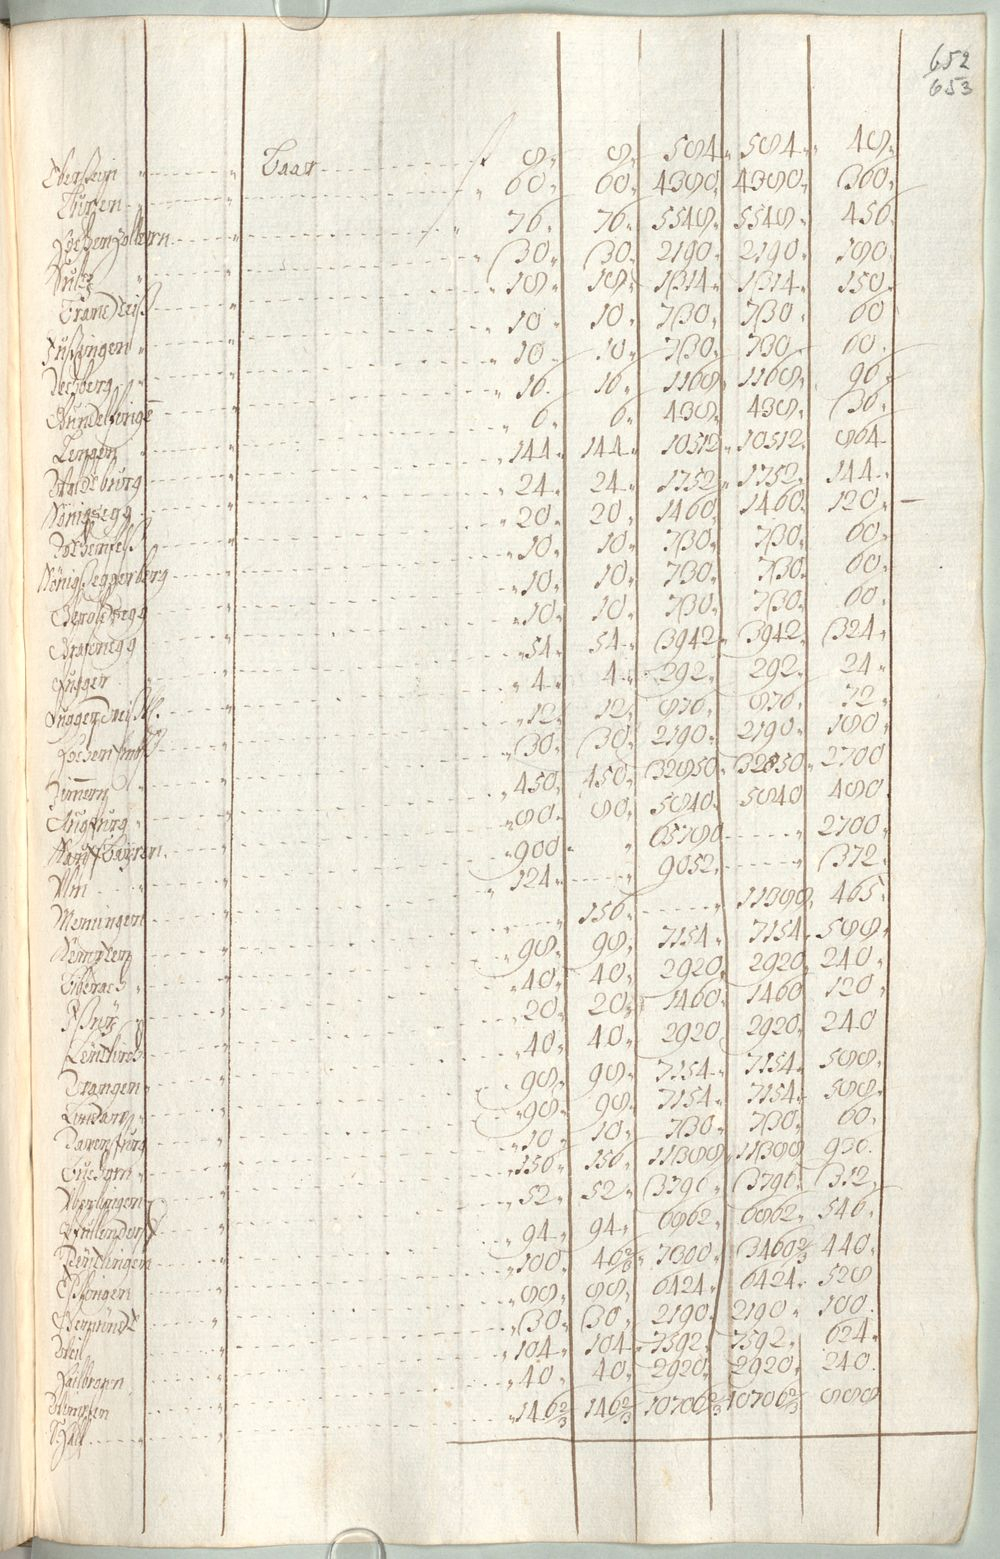 652
653
Eberstein " " Baar 8, 8, 584, 584, 48,
Thusen 60, 60, 4380, 4380, 360,
Hochenzollern 76, 76, 5548, 5548, 456,
Sultz 30, 30, 2190, 2190, 180,
18, 18, 1314, 1314, 150,
Jussingen 10, 10, 730, 730, 60
Rechberg 10, 10, 730, 730, 60,
Gundelfingen 16, 16, 1168, 1168, 96,
Tengen 6, 6, 438, 438, 36,
Waldburg 144, 144, 10512, 10512, 864
Königsegg 24, 24, 1752, 1752, 144
Rothenfelß 20, 20, 1460, 1460, 120
Königseggerberg 10, 10, 730, 730, 60,
Geroldsegg 10, 10, 730, 730, 60,
Grafenegg 10, 10, 730, 730, 60,
Fugger 54, 54, 3942, 3942, 324,
4, 4, 292, 292, 24
12, 12, 876, 876, 72
Zimmern 30, 30, 2190, 2190, 180,
Augspurg 450, 450, 32850, 32850, 2700
Kauffbayren 80, 80, 5840, 5840, 480
Ulm 900, 65700 2700
Memingen 124, 9052, 372,
Kempten 156, 11388, 465,
Biberach 98, 98, 7154, 7154, 588,
Ißny 40, 40, 2920, 2920, 240,
Leutkirch 20, 20, 1460, 1460, 120
Wangen 40, 40, 2920, 2920, 240
Lindaw 98, 98, 7154, 7154, 588,
Ravenspurg 98, 98, 7154, 7154, 588
Buchorn 10, 10, 730, 730, 60,
Uberlingen 156, 156, 11388, 11388, 936.
Pfullendorff 52, 52, 3796, 3796, 312,
Reutlingen 94, 94, 6862, 6862, 546,
Esslingen 100, 46⅔, 7300, 3460⅔ 440,
Gemündt 88, 88, 6424, 6424, 528
Weil 30, 30, 2190, 2190, 180.
Hailbronn 104, 104, 7592, 7592, 624,
Wimpfen 40, 40, 2920, 2920, 240.
Hall 146⅔ 146⅔ 10706⅔ 10706⅔ 888